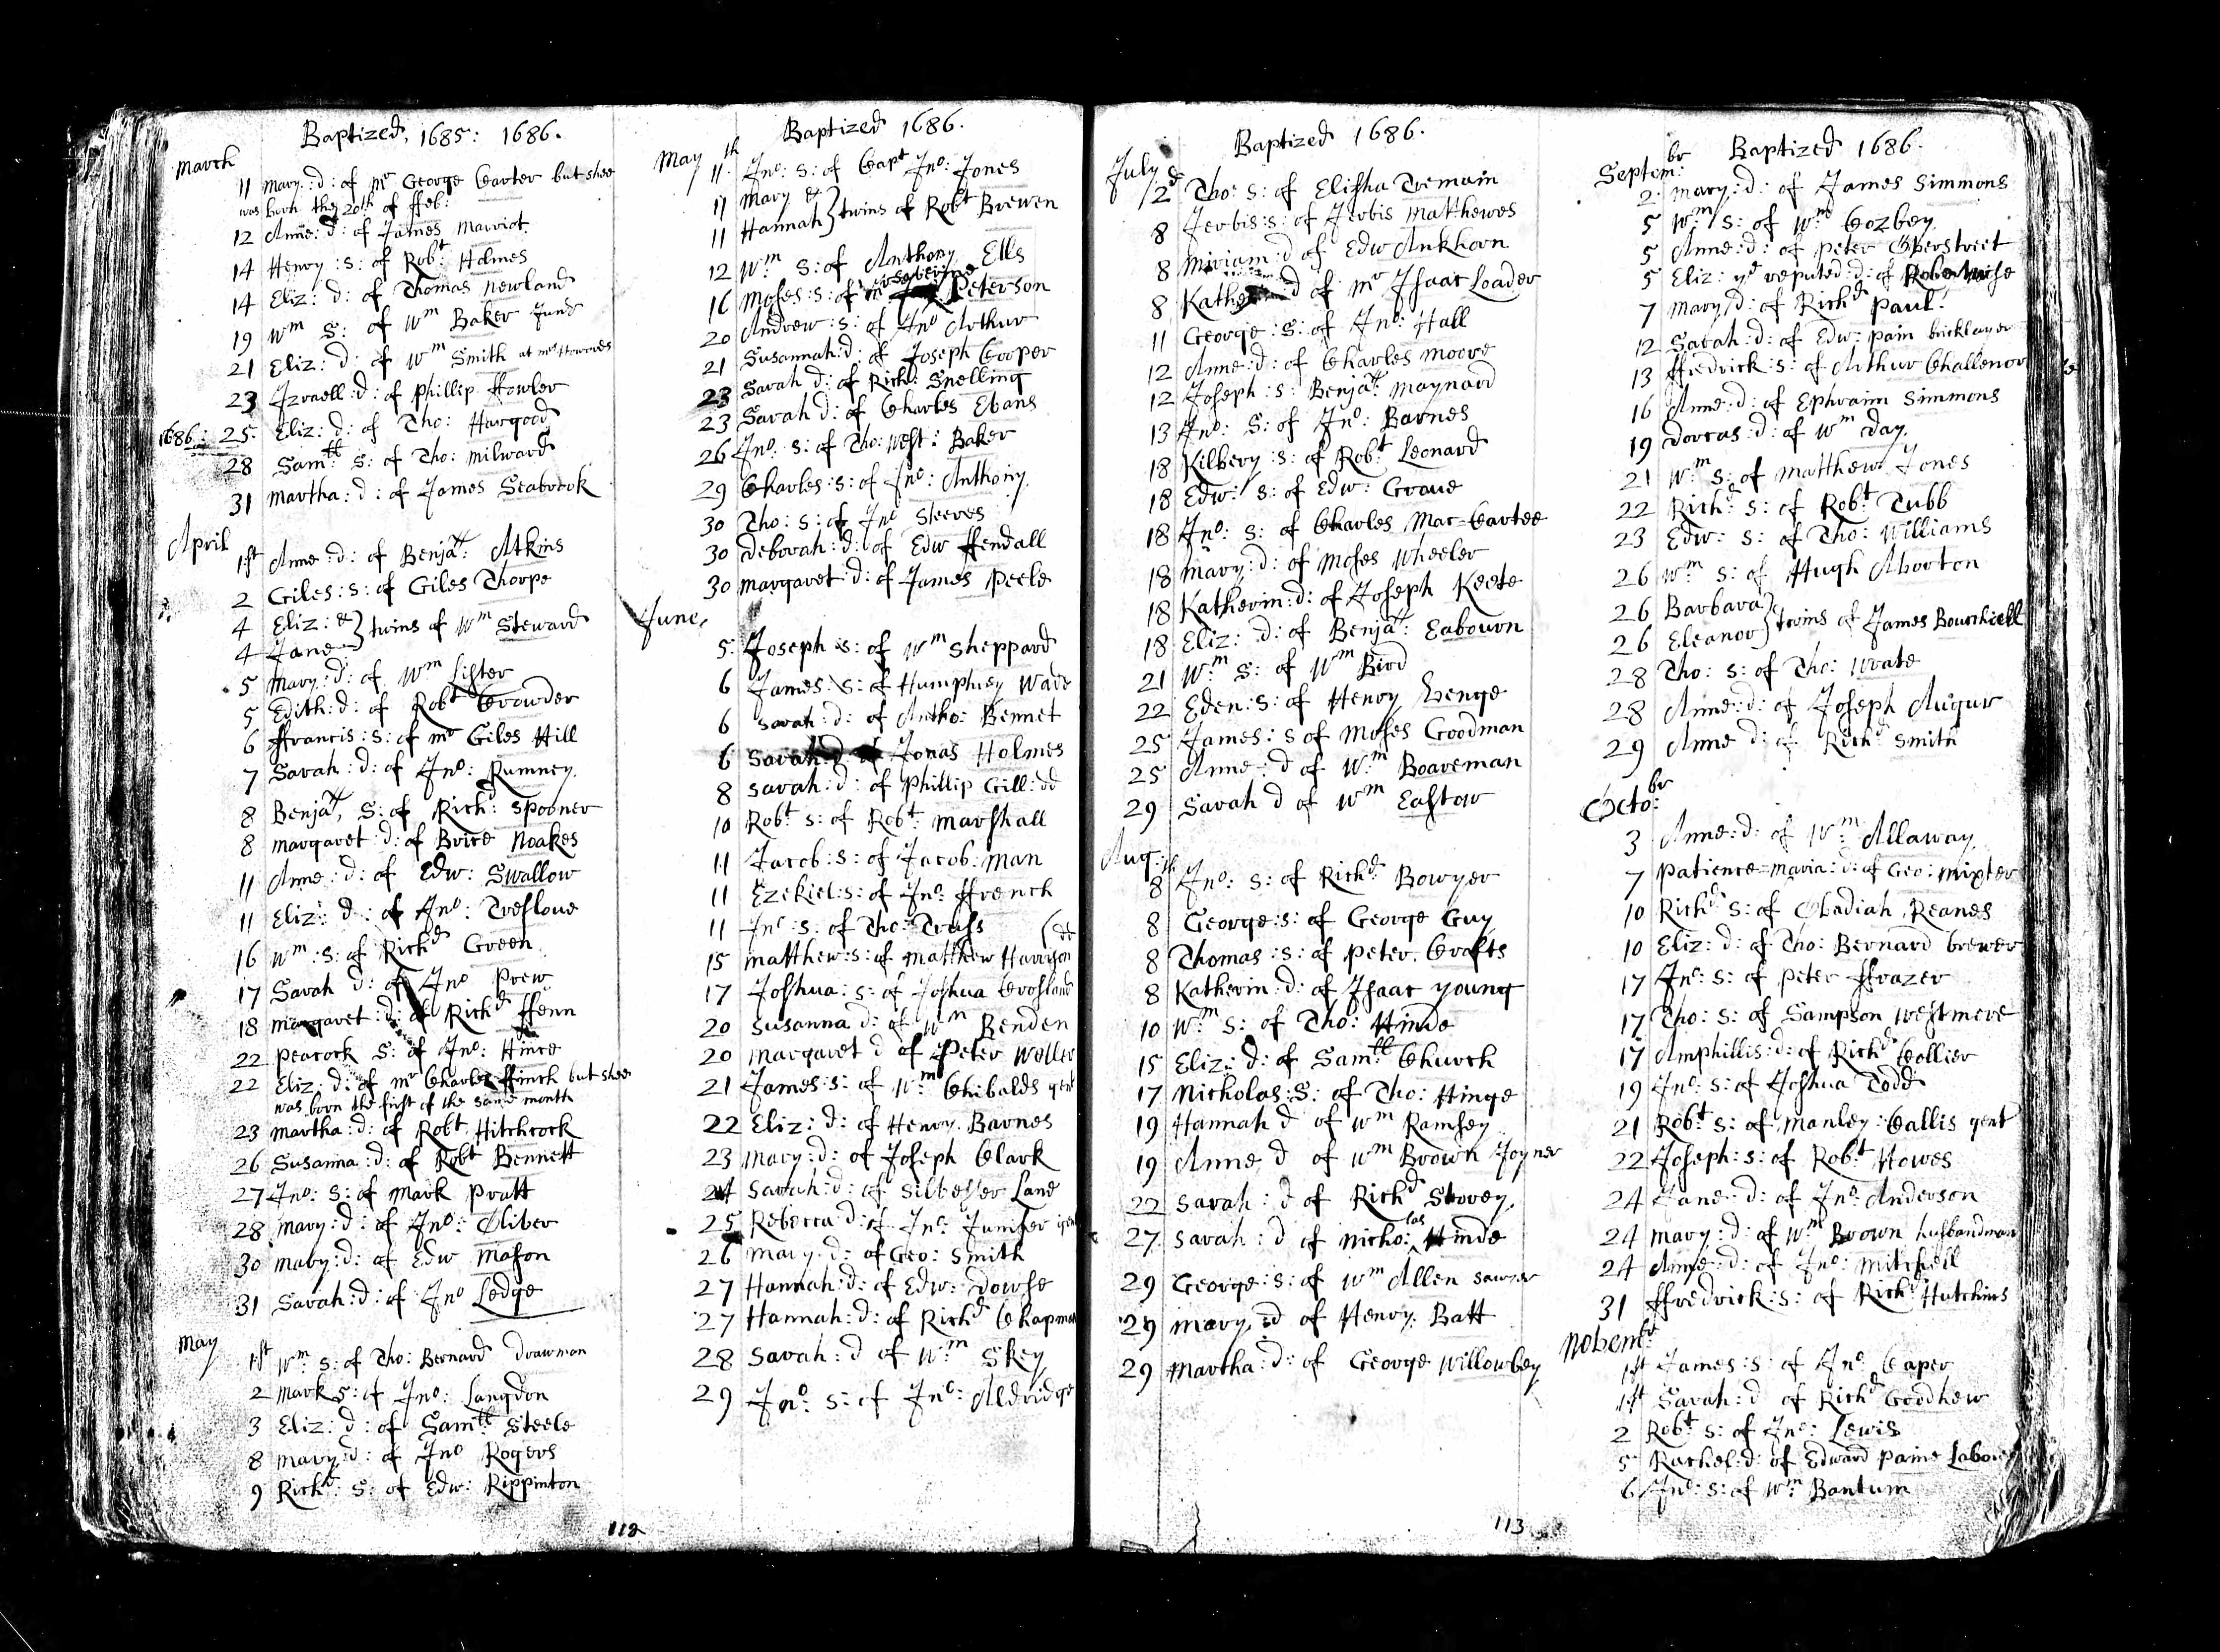 Baptized, 1685: 1686.
March
11 Mary: d: of Mr George Carter but shee
was born the 20th of ffeb:
12 Anne: d: of James Marriot.
14 Henry: s: of Robt Holmes
14 Eliz: d: of Thomas Newland
19 Wm S: of Wm Baker Junr
21 Eliz: d: of Wm Smith at Mrs
23 Izraell: d: of Phillip ffowler
1686: 25. Eliz: d: of Tho: Hargood
28 Samll S: of Tho: Milward
31 Martha: d: of James Seabrook
April
1st Anne: d: of Benja: Atkins
2 Giles: s: of Giles Thorpe
4 Eliz: & } twins of Wm Steward
4 Jane
5 Mary: d: of Wm Lister
5 Edith: d: of Robt Crowder
6 ffrancis: s: of Mr Giles Hill
7 Sarah: d: of Jno: Rumney.
8 Benja, S: of Richd: Spooner
8 Margaret: d: of Brice Noakes
11 Anne: d: of Edw: Swallow
11 Eliz: d: of Jno: Treslove
16 Wm: s: of Richd Green
17 Sarah d: of Jno Prew
18 Margaret: d: of Richd ffenn
22 Peacock S: of Jno: Hince
22 Eliz: d: of Mr Charles ffinch but shee
was born the first of the same month
23 Martha: d: of Robt Hitchcock
26 Susanna: d: of Robt Bennett
27 Jno: S: of Mark Pratt
28 Mary: d: of Jno: Oliver
30 Mary: d: of Edw Mason
31 Sarah: d: of Jno Lodge
May
1st Wm s: of Tho: Bernard drawman
2 Mark s: of Jno: Langdon
3 Eliz: d: of Samll Steele
8 Mary: d: of Jno Rogers
9 Richd: S: of Edw: Rippinton
112
Baptized 1686.
May 11th Jno: S: of Capt Jno: Jones
11 Mary & } twins of Robt Brewen
11 Hannah
12 Wm S: of Anthony Ells
16 Moses: s: of Mr Peterson
20 Andrew: s: of Jno Arthur
21 Susannah: d: of Joseph Cooper
23 Sarah d: of Richd: Snelling
23 Sarah d: of Charles Evans
26 Jno: s: of Tho: West: Baker
29 Charles: s: of Jno: Anthony.
30 Tho: s: of Jno Sleeves
30 Deborah: d: of Edw ffendall
30 Margaret: d: of James Peele
June,
5. Joseph s: of Wm Sheppard
6 James: s: of Humphrey Wade
6 Sarah: d: of Antho: Bennet
6 Sarah: d of Jonas Holmes
8 Sarah: d: of Phillip Gill:
10 Robt s: of Robt Marshall
11 Jacob: s: of Jacob: Man
11 Ezekiel: s: of Jno: ffrench
11 Jno: s: of Tho: Trass
15 Matthew: s: of Matthew Harrison
17 Joshua: s: of Joshua Crosland
20 Susanna d: of Wm Benden
20 Margaret d of Peter Weller
21 James: s: of Wm Chibalds gent
22 Eliz: d: of Henry Barnes
23 Mary: d: of Joseph Clark
24 Sarah: d: of Silvester Lane
25 Rebecca: d: of Jno: Juniper
26 Mary: d: of Geo: Smith
27 Hannah: d: of Edw: Dowse
27 Hannah: d: of Richd Chapman
28 Sarah: d of Wm Skey
29 Jno: s: of Jno: Aldridge
Baptized 1686.
July 2d Tho: s: of Elisha Tremain
8 Jervis: s: of Jervis Matthewes
8 Miriam: d of Edw Ankhorn
8 d of Mr Isaac Loader
11 George: s: of Jno: Hall
12 Anne: d: of Charles Moore
12 Joseph: s: Benja: Maynard
13 Jno: S: of Jno: Barnes
18 Kilbery: s: of Robt Leonard
18 Edw: s: of Edw: Grove
18 Jno: s: of Charles Mac=Cartee
18 Mary: d: of Moses Wheeler
18 Katherin: d: of Joseph Keete
18 Eliz: d: of Benja: Eabourn
21 Wm s: of Wm Bird
22 Eden: s: of Henry Venge
25 James: s of Moses Goodman
25 Anne: d of Wm Boareman
29 Sarah d of Wm Eastow
Aug: 8th Jno: S: of Richd Bowyer
8 George: s: of George Guy
8 Thomas: s: of Peter. Crafts
8 Katherin: d: of Isaac Young
10 Wm s: of Tho: Hinde
15 Eliz: d: of Samll Church
17 Nicholas: S: of Tho: Hinge
19 Hannah d of Wm Ramsey
19 Anne d of Wm Brown Joyner
22 Sarah: d of Richd Storey,
27 Sarah: d of Nicholas Hinde
29 George: s: of Wm Allen sawyer
29 Mary d of Henry Batt
29 Martha: d: of George Willowbey
113
Baptized 1686.
Septembr
2. Mary: d: of James Simmons
5 Wm s: of Wm Cozbey.
5 Anne: d: of Peter Overstreet
5 Eliz: ye reputed: d: of
7 Mary: d: of Richd Paul:
12 Sarah: d: of Edw: Pain bricklayer
13 ffredrick: s: of Arthur Challenor
16 Anne: d: of Ephraim Simmons
19 Dorcas: d: of Wm Day.
21 Wm s: of Matthew Jones
22 Richd s: of Robt Tubb
23 Edw: s: of Tho: Williams
26 Wm s: of Hugh Aborton
26 Barbara } twins of James
26 Eleanor
28 Tho: s: of Tho: Wrate
28 Anne: d: of Joseph Augur
29 Anne d: of Richd Smith
Octobr
3 Anne: d: of Wm Allaway
7 Patience=Maria: d: of Geo: Mixter
10 Richd s: of Obadiah Reanes
10 Eliz: d: of Tho: Bernard brewer
17 Jno: s: of Peter ffrazer
17 Tho: s: of Sampson Westmere
17 Amphillis: d: of Richd Collier
19 Jno: s: of Joshua Todd
21 Robt s: of Manley: Callis gent
22 Joseph: s: of Robt Howes
24 Jane: d: of Jno: Anderson
24 Mary: d: of Wm Brown husbandman
24 Anne: d: of Jno: Mitchell
31 ffredrick: s: of Richd Hutchins
Novembr
1st James: s: of Jno Caper
1st Sarah: d of Richd Goodhew
2 Robt s: of Jno: Lewis
5 Rachel: d: of Edward Paine Labourer
6 Jno: s: of Wm Bantum